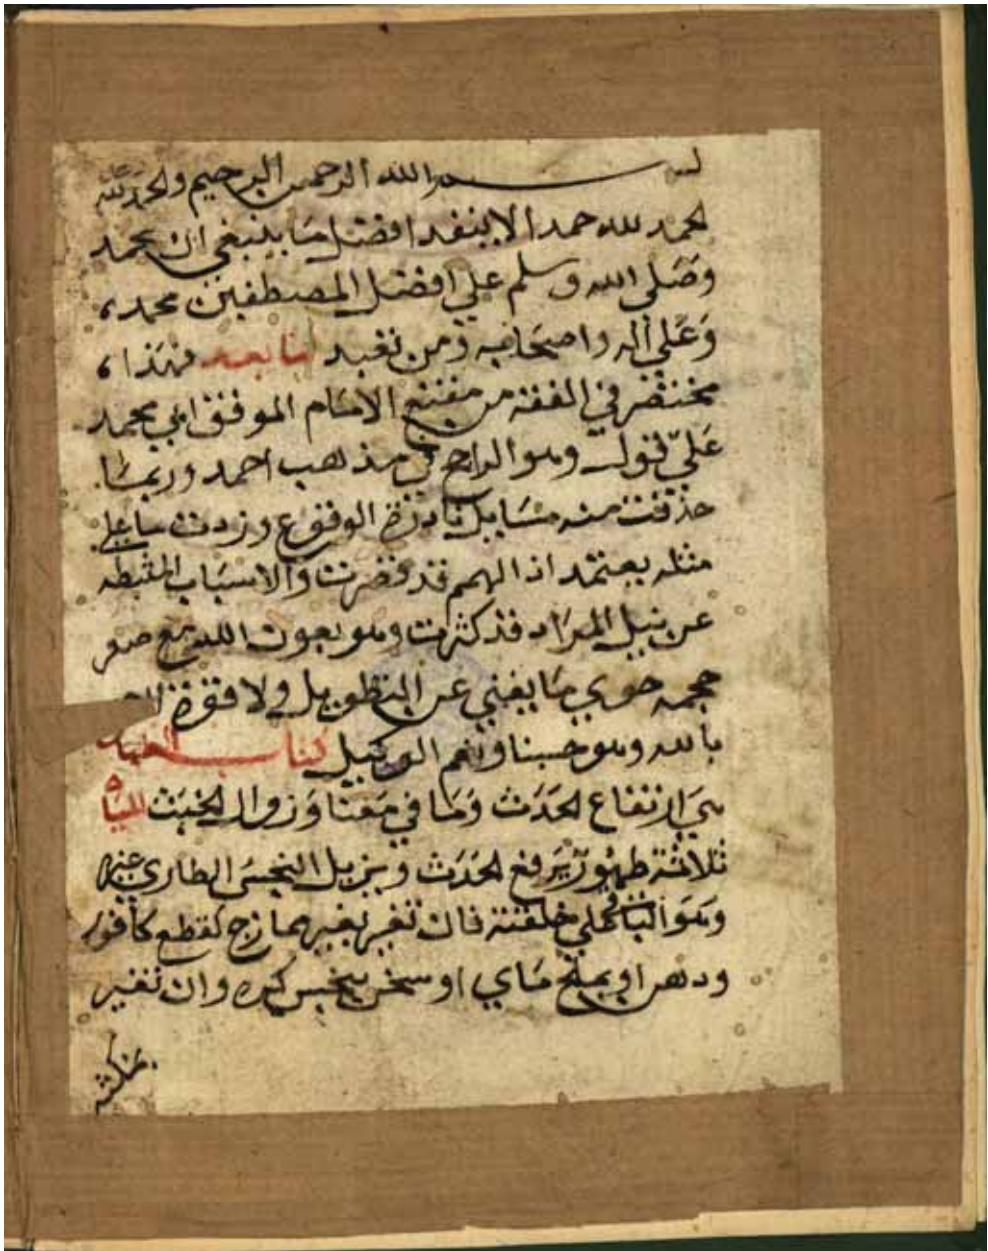 بسم الله الرحمن الرحيم والحمد لله
الحمد لله حمدا لا ينفد افضل ما ينبغي ان يحمد
وصلى الله وسلم علي افضل المصطفين محمد،
وعلي اله واصحابه ومن تعبد اما بعد فهذا،
مختصر في الفقه من مقنع الامام الموفق ابي محمد
علي قول وهو الراجح في مذهب احمد وربما
حذفت منه مسايل نادرة الوقوع وزدت ما علي
مثله يعتمد اذ الهمم قد قصرت والاسباب المثبطه
عن نيل المراد قد كثرت وهو بعون الله مع صغر
حجمه حوي ما يغني عن التطويل ولا قوة الا
بالله وهو حسبنا ونعم الوكيل كتاب الطهارة
هي ارتفاع الحدث وما في معناه وزوال الخبث المياه
ثلاثة طهور يرفع الحدث ويزيل النجس الطاري غيره
وهو الباقي علي خلقته فان تغير بغير ممازج كقطع كافور
ودهن او بملح ماي او سخن بنجس كره وان تغير
بمكثه